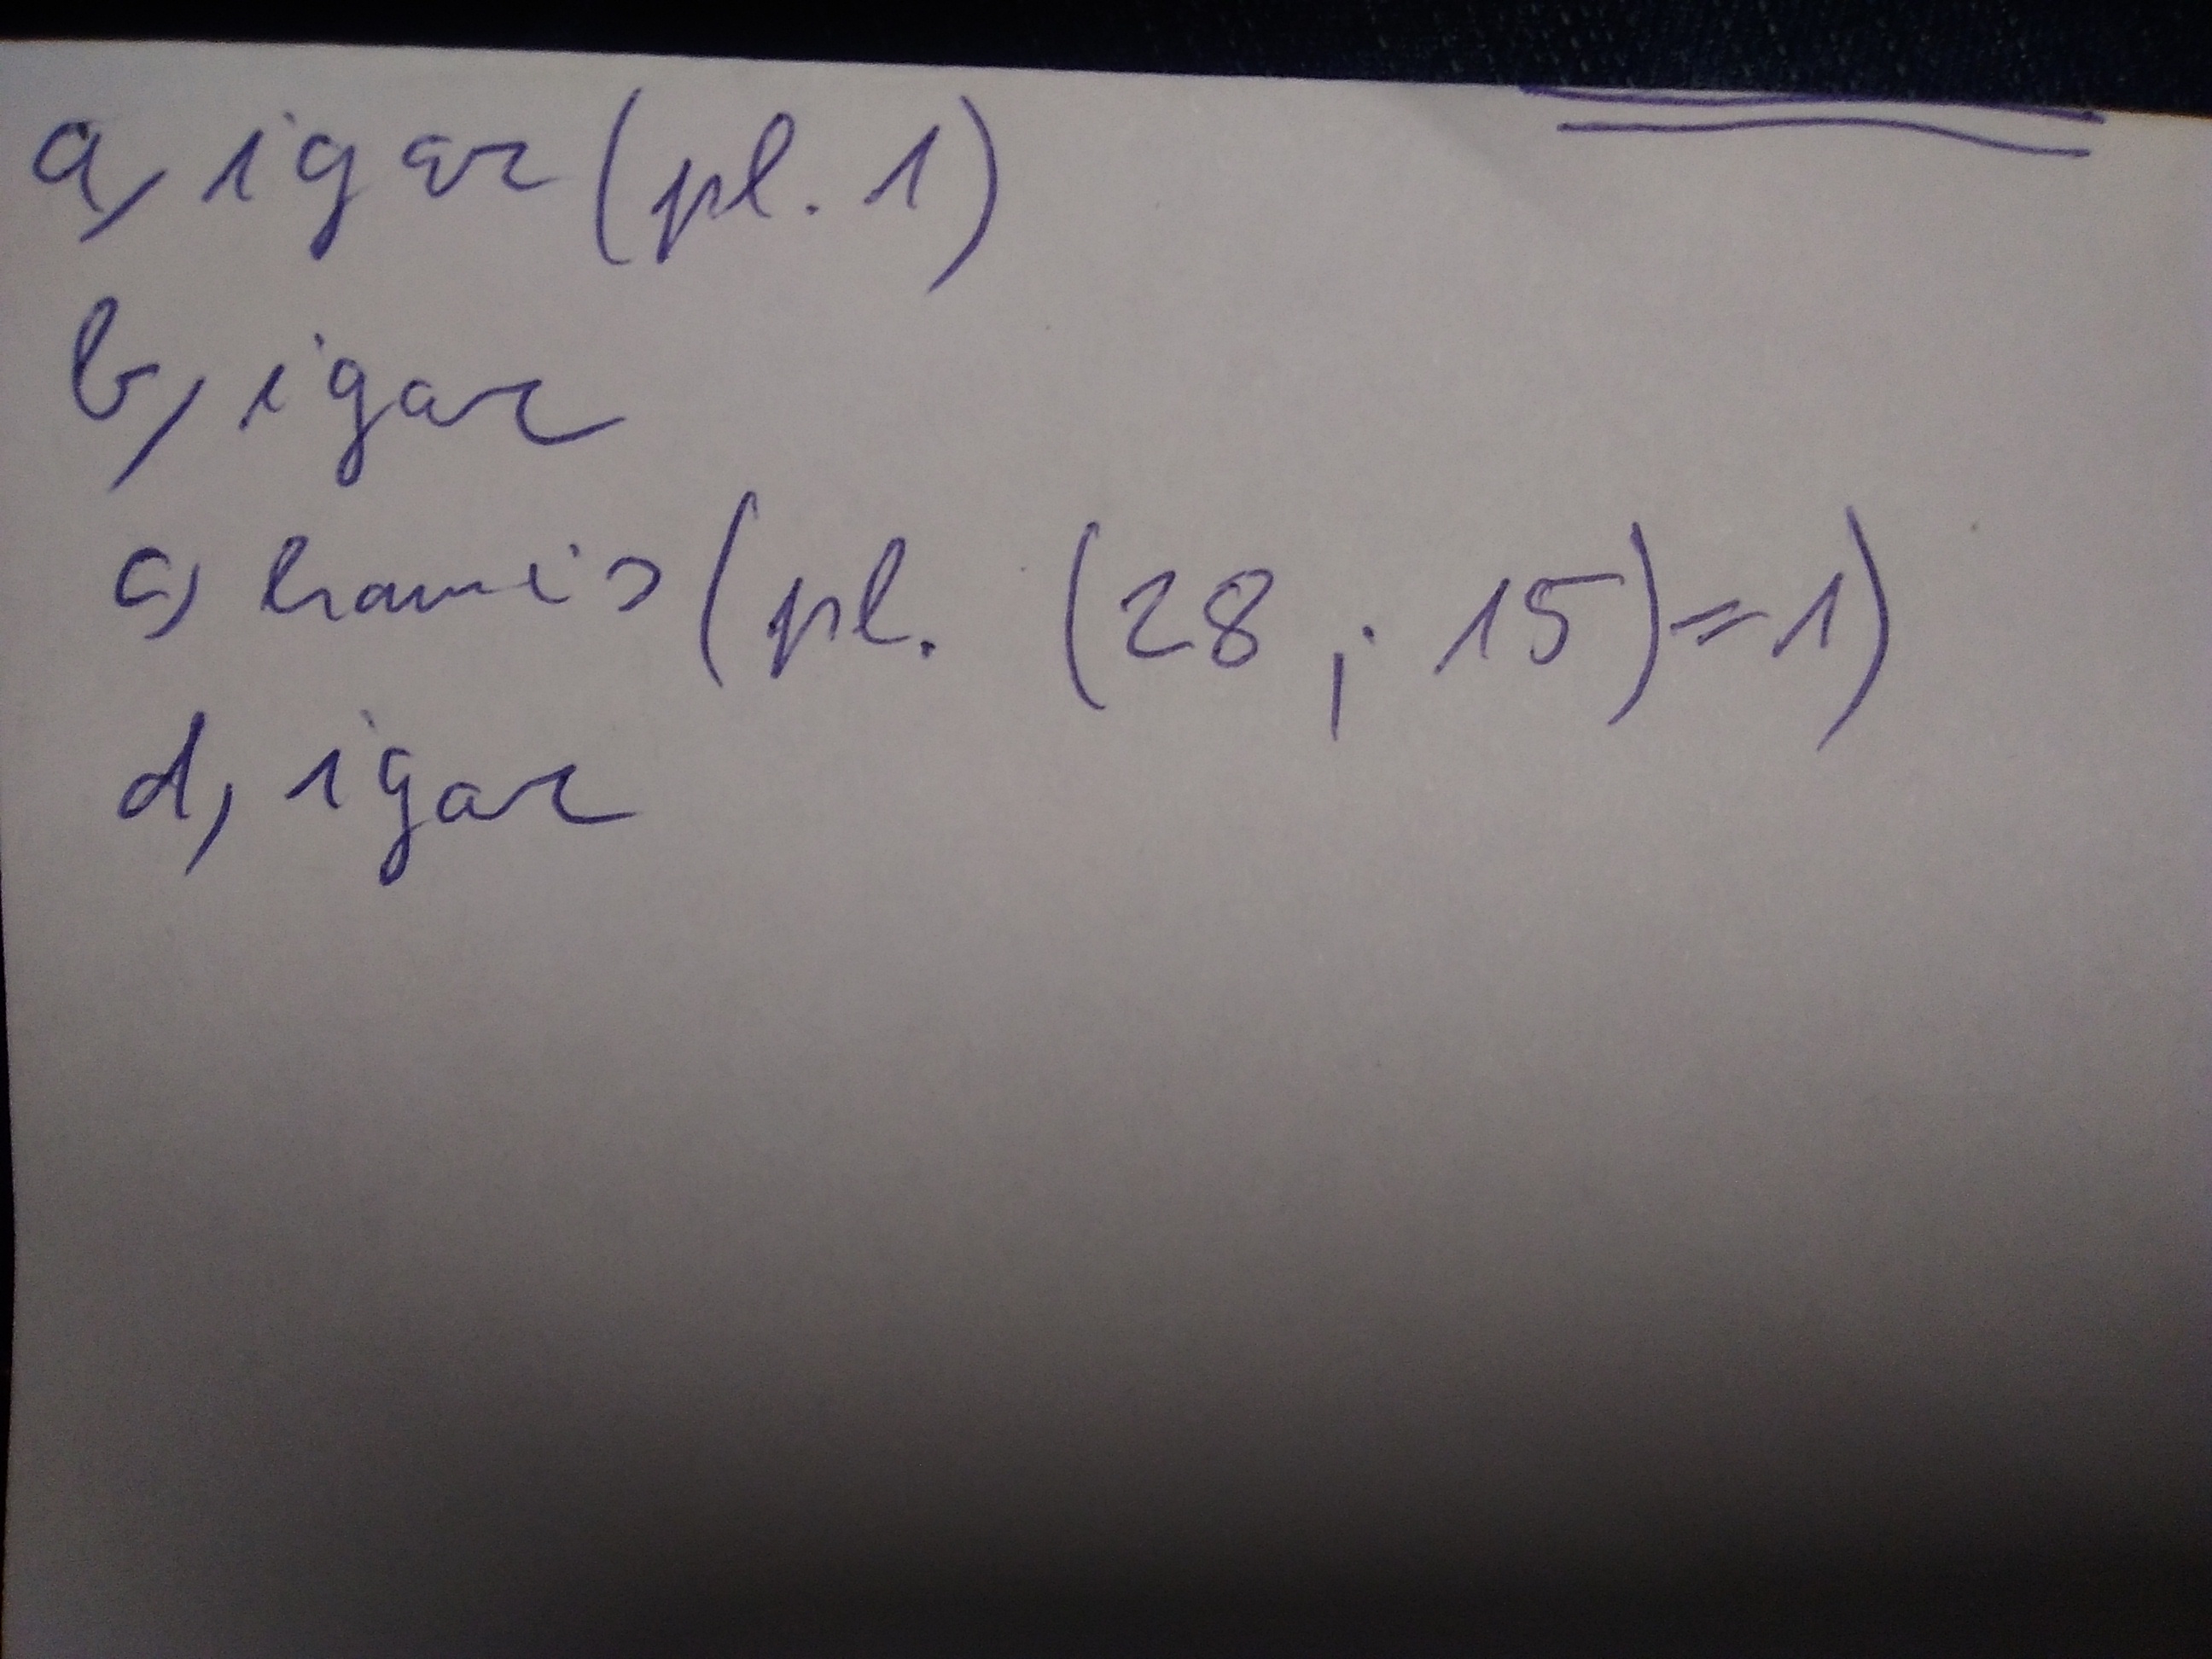 a, igaz (pl. 1)
b, igaz
c, hamis (pl. (28 ; 15) = 1)
d, igaz